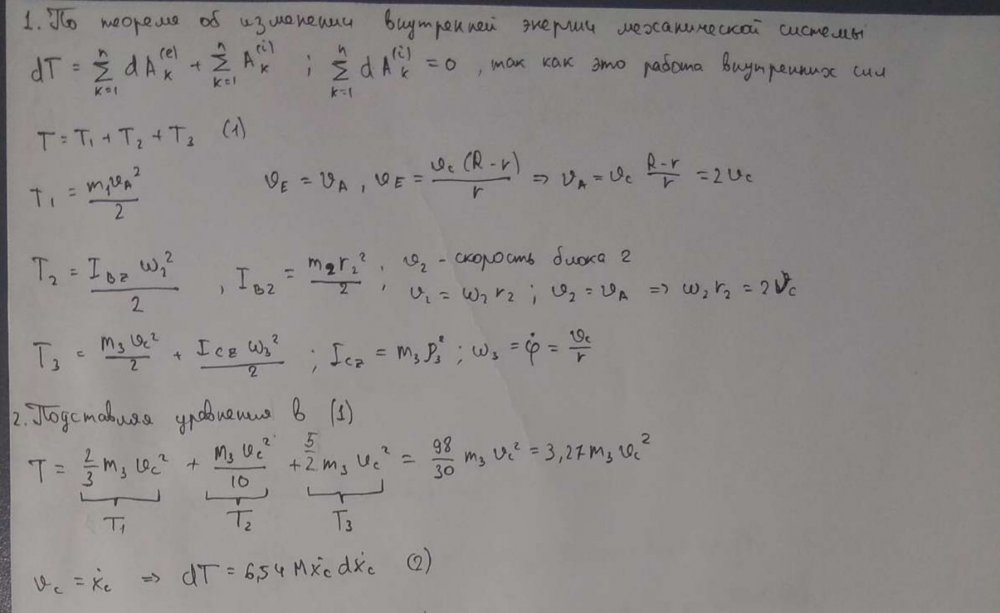 1. По теореме об изменении внутренней энергии механической системы
dT = Σ_{k=1}^{n} dA_k^{(e)} + Σ_{k=1}^{n} A_k^{(i)} ; Σ_{k=1}^{n} dA_k^{(i)} = 0 , так как это работа внутренних сил
T = T₁ + T₂ + T₃ (1)
T₁ = m₁v_A²/2    v_E = v_A , v_E = v_c (R-r)/r ⇒ v_A = v_c (R-r)/r = 2v_c
T₂ = I_{BZ} ω₂²/2 , I_{BZ} = m₂r₂²/2 ; v₂ - скорость блока 2
v₂ = ω₂r₂ ; v₂ = v_A ⇒ ω₂r₂ = 2v_c
T₃ = m₃v_c²/2 + I_{CZ} ω₃²/2 ; I_{CZ} = m₃ρ₃² ; ω₃ = φ̇ = v_c/r
2. Подставляя уровнения в (1)
T = 2/3 m₃v_c² + m₃v_c²/10 + 5/2 m₃v_c² = 98/30 m₃v_c² = 3,27m₃v_c²
T₁ T₂ T₃
v_c = ẋ_c ⇒ dT = 6,54 Mẋ_c dẋ_c (2)